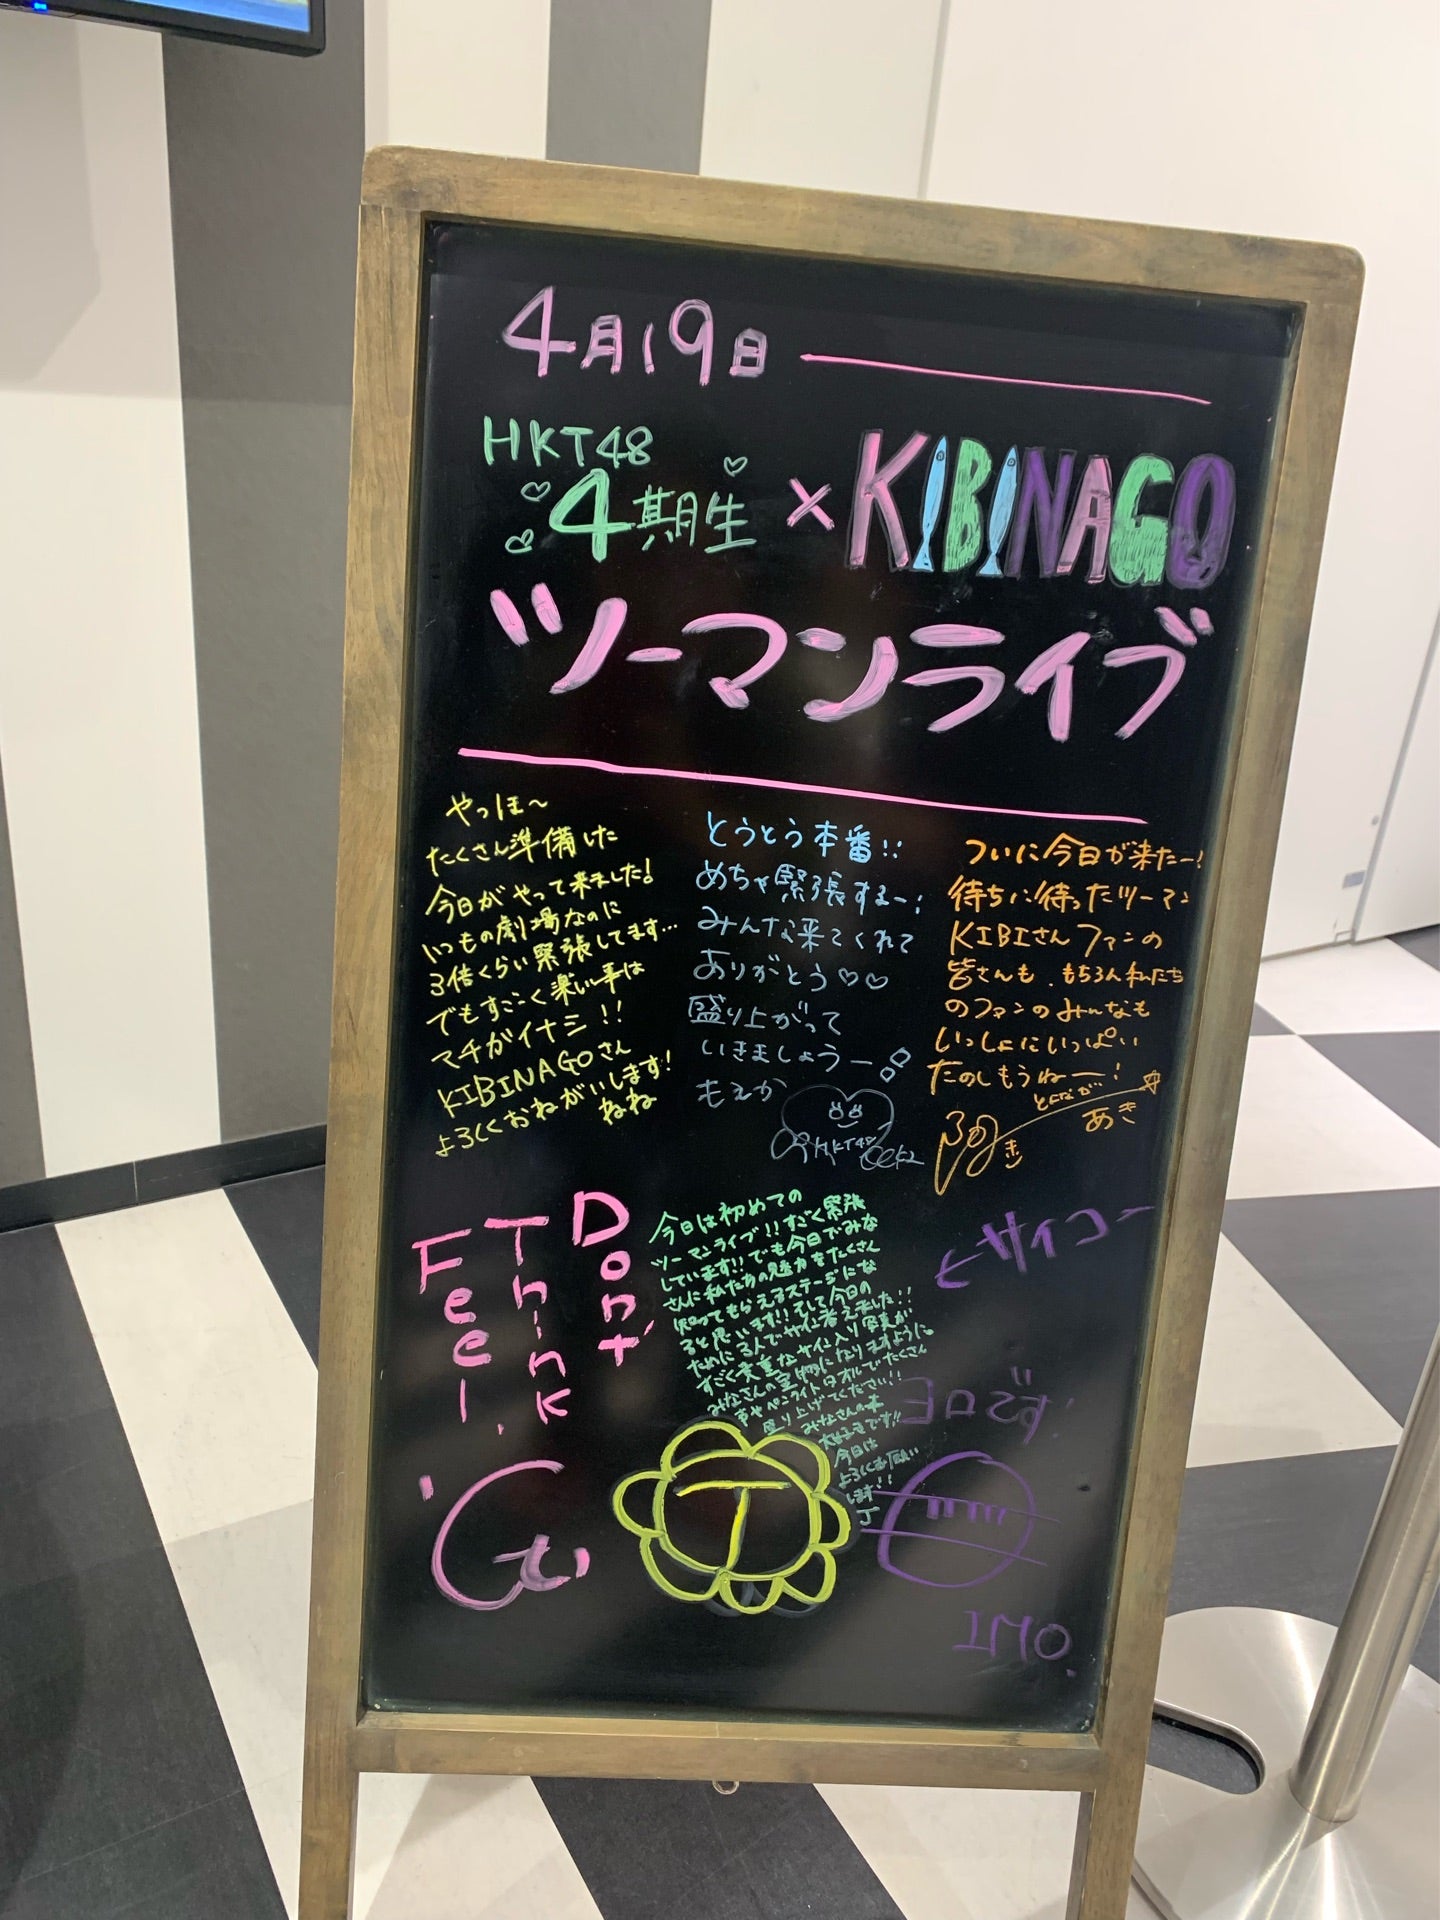 4月19日
HKT48
4期生 × KIBINAGO
ツーマンライブ
やっほ〜
たくさん準備した
今日がやって来ました!
いつもの劇場なのに
3倍くらい緊張してます…
でもすごく楽しい事は
マチガイナシ!!
KIBINAGOさん
よろしくおねがいします!
ねね
とうとう本番!!
めちゃ緊張するー!
みんな来てくれて
ありがとう♡♡
盛り上がって
いきましょうー
もえか
HKT48
ついに今日が来たー!
待ちに待ったツーマン
KIBIさんファンの
皆さんも、もちろん私たち
のファンのみんなも
いっしょにいっぱい
たのしもうねー!
とよなが
あき
Don't
Think
Feel.
今日は初めての
ツーマンライブ!!すごく緊張
しています!!でも今日でみな
さんに私たちの魅力をたくさん
知ってもらえるステージにな
ると思います!!そして今日の
ために3人でサイン考えました!!
すごく貴重なサイン入り写真が
みなさんの宝物になりますように。
声やペンライトタオルでたくさん
盛り上げてください!!
みなさんの事
大好きです!!
今日は
よろしくお願い
します!!
J
サイコー
IMO.